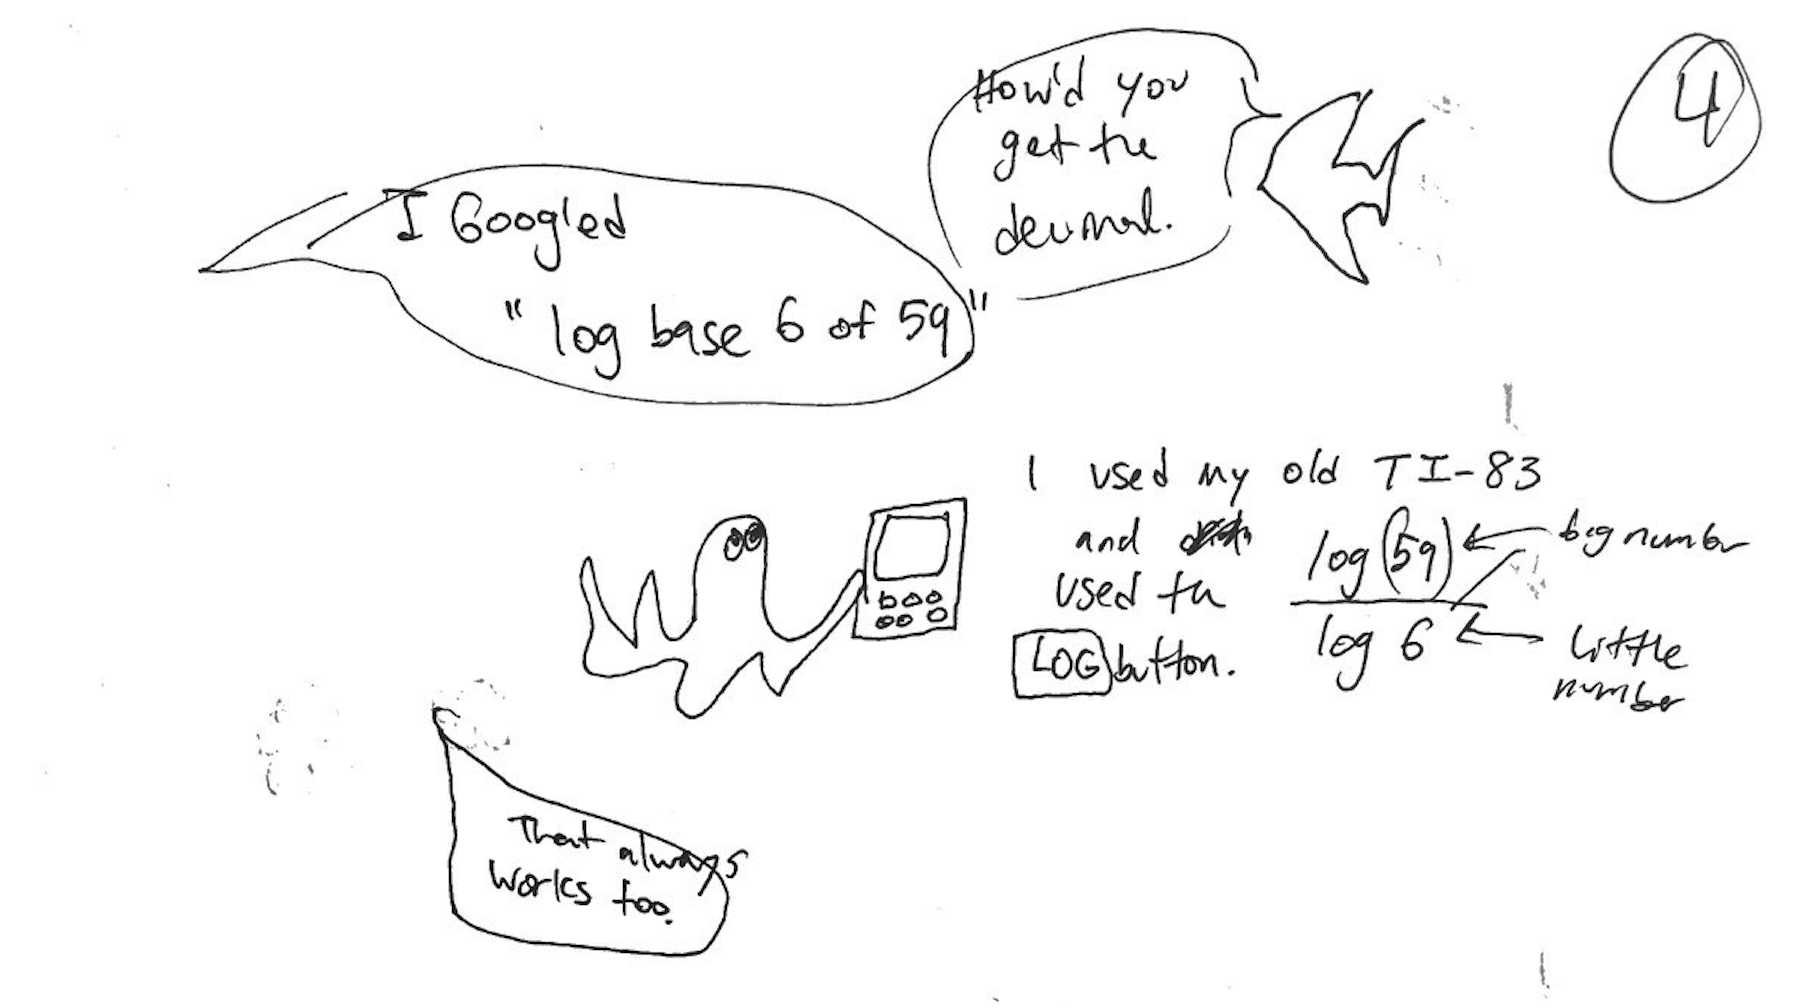 4
How'd you
get the
decimal.
I Googled
"log base 6 of 59"
I used my old TI-83
and
used the
LOG button.
log(59)
log 6
big number
little
number
That always
works too.